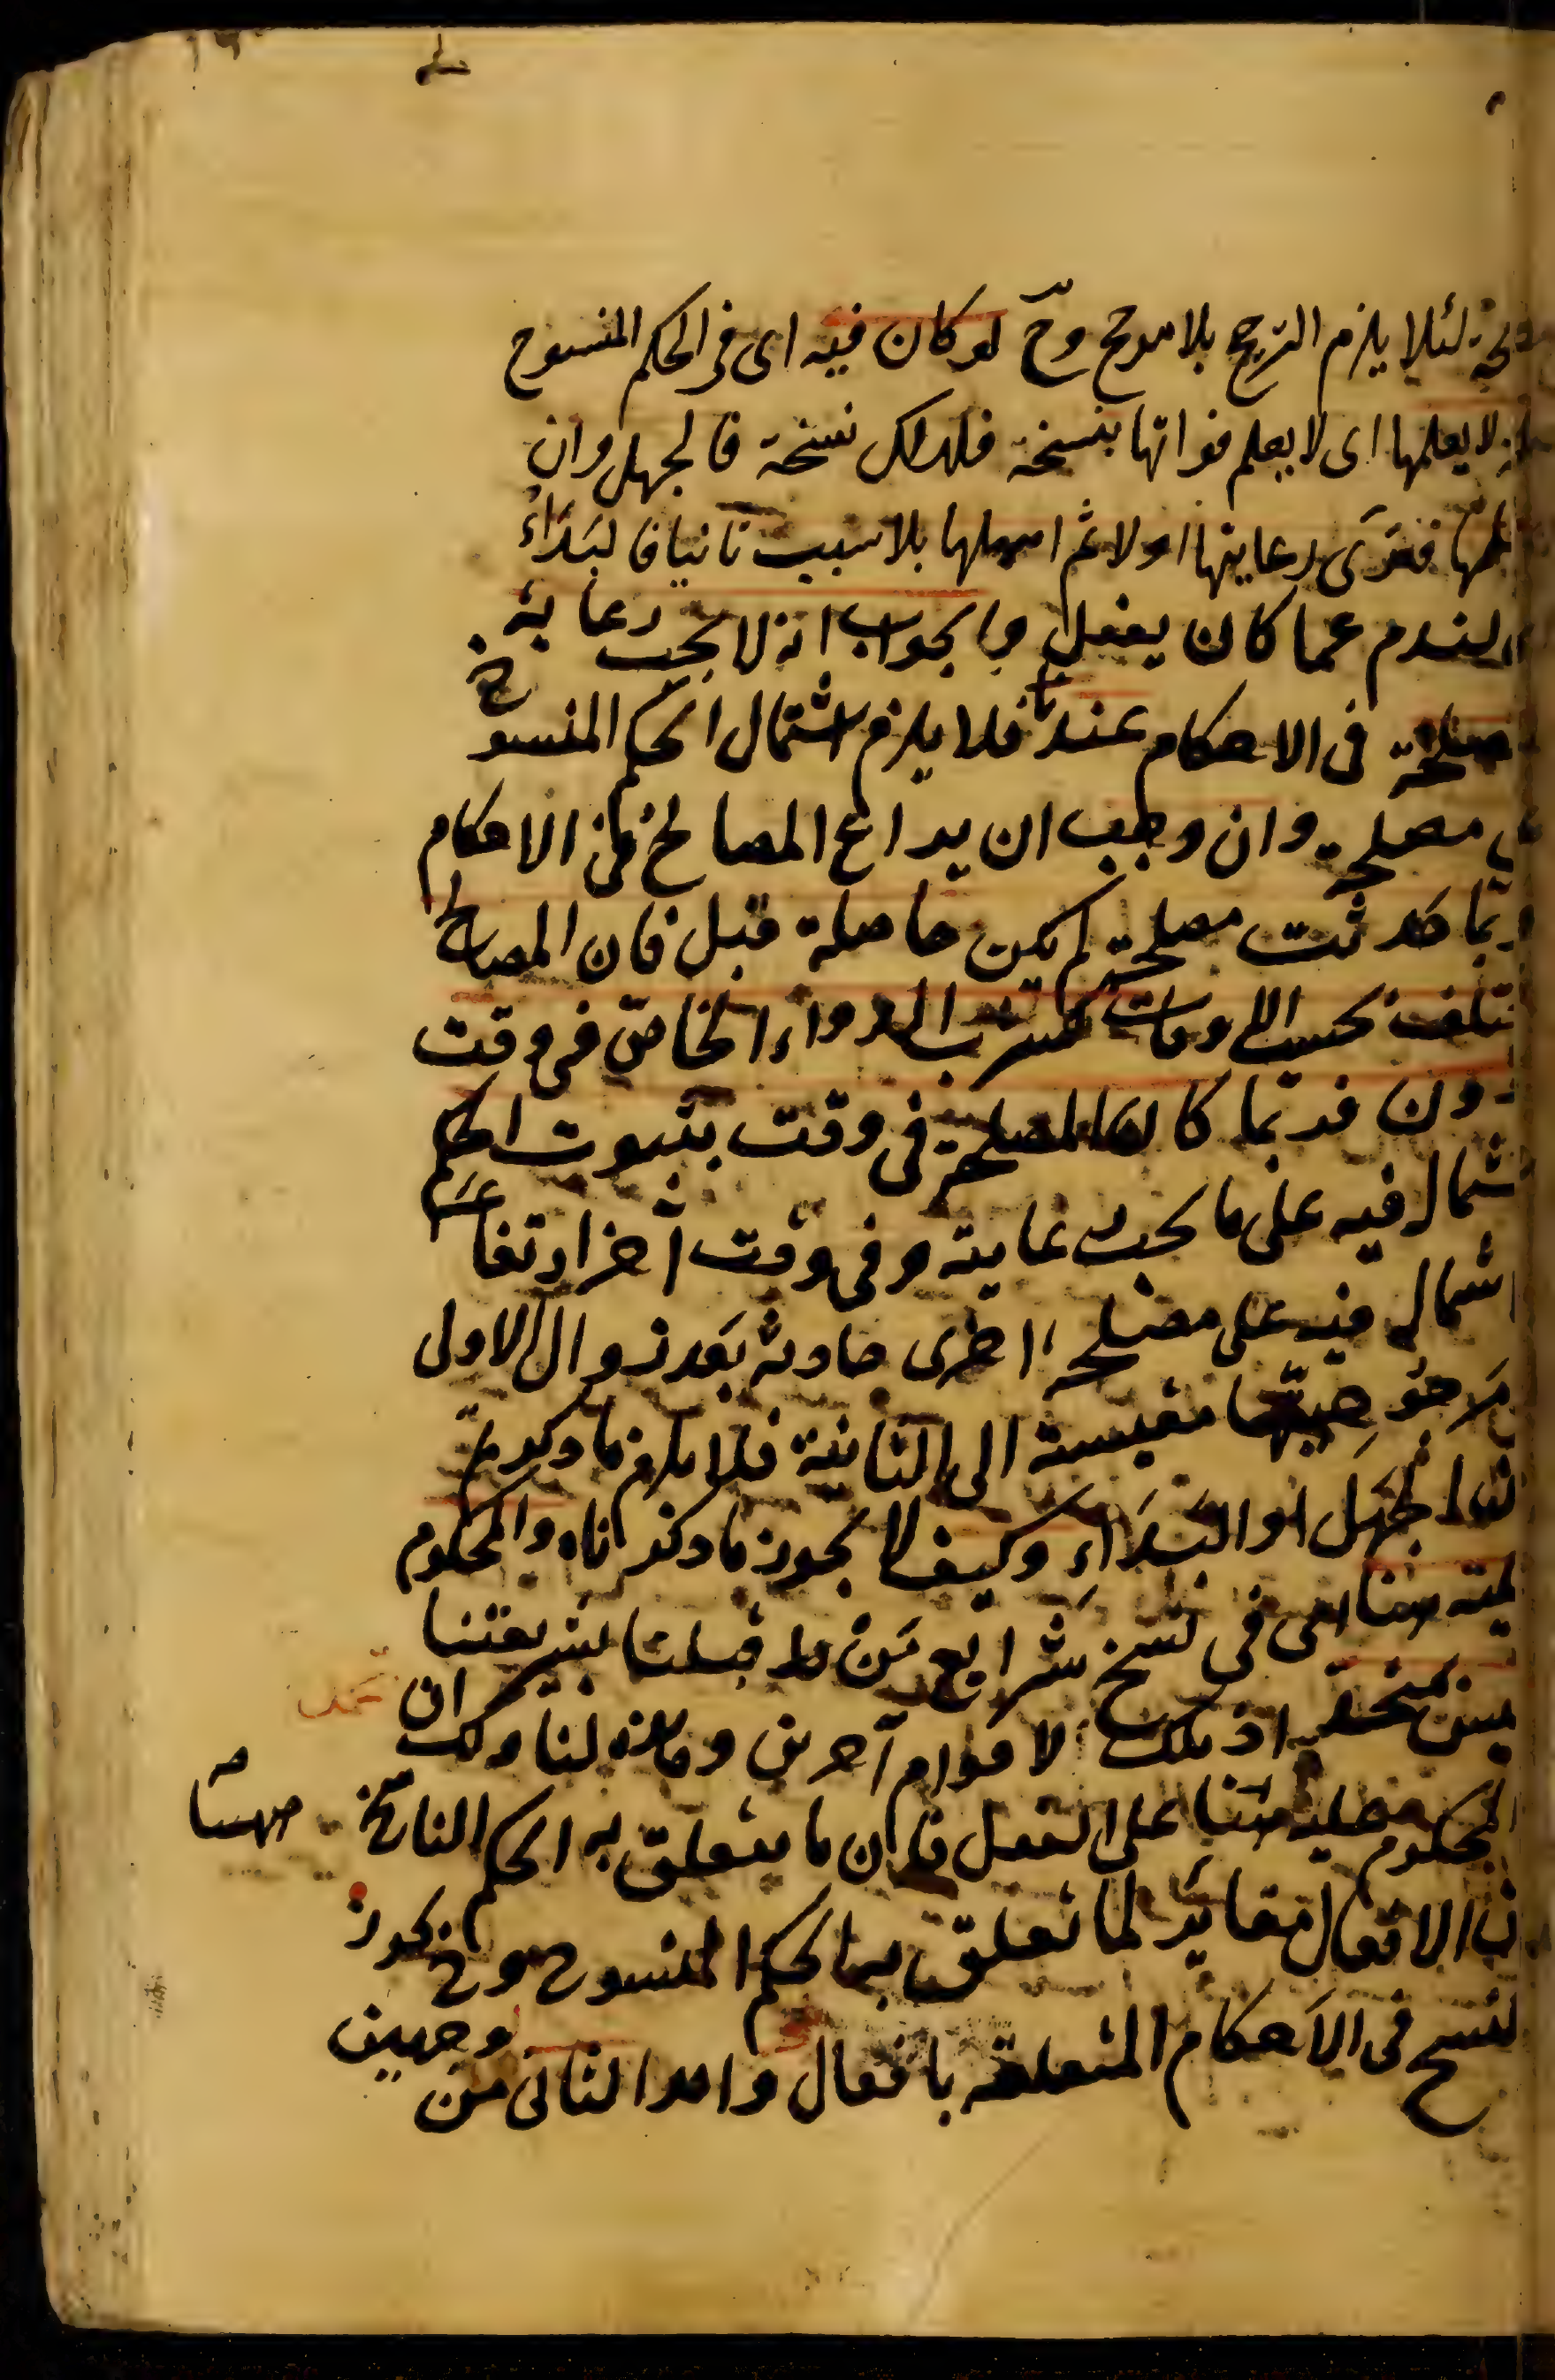 لئلا يلزم الترجيح بلا مرجح وح لو كان فيه اى فى الحكم المنسوخ
لا يعلمها اى لا يعلم فواتها بنسخه فلذلك نسخه فالجهل وان
فرأى رعايتها اولا ثم اهملها بلا سبب ثانيا فالبَدَاءُ
الندم عما كان يفعل والجواب انه لا يجب رعاية
المصلحة فى الاحكام عندنا فلا يلزم اشتمال الحكم المنسوخ
مصلحة وان وجب ان يراعى المصالح فى الاحكام
ربّما حدثت مصلحة لم يكن حاصلة قبل فان المصالح
تختلف بحسب الاوقات كشرب الدواء الخاصّ فى وقت
دون فربّما كان المصلحة فى وقت بثبوت الحكم
اشتمال فيه على ما يجب رعايته وفى وقت آخر ارتفاعه
اشتمال فيه على مصلحة اخرى حادثة بعد زوال الاولى
مقيسة الى الثانية فلا يلزم ما ذكرتم
الجهل او البَدَاءِ وكيف لا يجوز ما ذكرناه والمحكوم
هنا اى فى نسخ شرايع مَنْ قبلنا بشريعتنا
اذ تلك لاقوام آخرين وهذه لنا وكذا ان
المحكوم عليه هنا على الفعل فان ما يتعلق به الحكم الناسخ ههنا
الافعال مغاير لما تعلق به الحكم المنسوخ وح يجوز
النسخ فى الاحكام المتعلقة بافعال واحد الثانى من وجهين